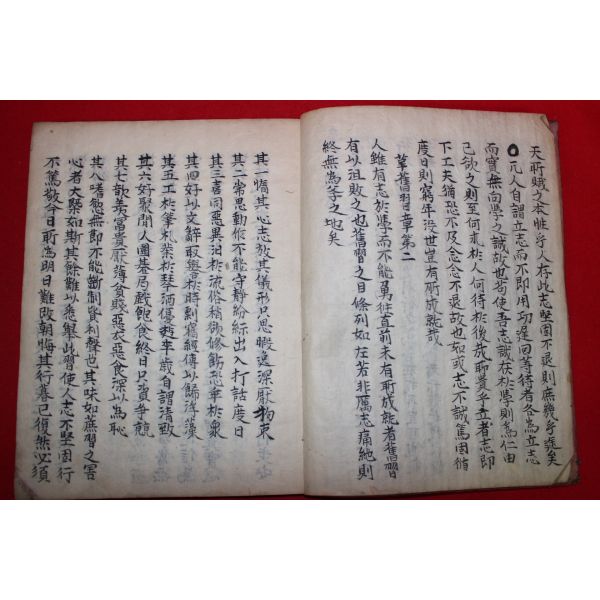 天所賦之本性乎人存此志堅固不退則庶幾乎道矣
○凡人自謂立志而不即用功遲回等待者名為立志
而實無向學之誠故也苟使吾志誠在於學則為仁由
己欲之則至何求於人何待於後哉所貴乎立者志即
下工夫猶恐不及念念不退故也如或志不誠篤因循
度日則窮年沒世豈有所成就哉
革舊習章第二
人雖有志於學而不能勇往直前未有所成就者舊習
有以沮敗之也舊習之目條列如左若非厲志痛絶則
終無為學之地矣
其一惰其心志放其儀形只思暇逸深厭拘束
其二常思動作不能守靜紛綜出入打話度日
其三喜同惡異汨於流俗稍欲修飭恐乖於衆
其四好以文辭取譽於時剽竊經傳以飾浮藻
其五工於筆札業於琴酒優游卒歲自謂清致
其六好聚閒人圍碁局戲飽食終日只資爭競
其七歆羨富貴厭薄貧賤惡衣惡食深以為恥
其八嗜慾無節不能斷制貨利聲世其味如蔗習之害
心者大槩如斯其餘難以悉舉此習使人志不堅固行
不篤敬今日所為明日難改朝悔其行暮已復然必須